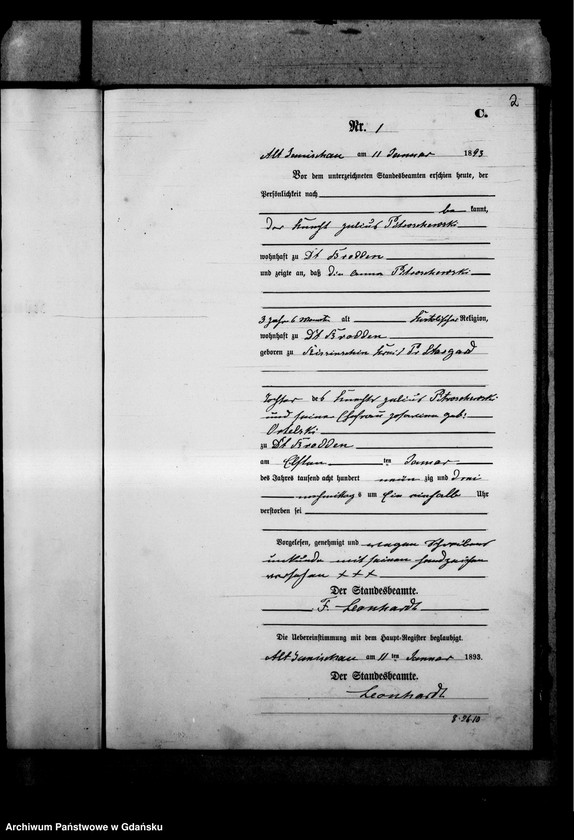 2
C.
Nr. 1
am 11 Januar 1893
Vor dem unterzeichneten Standesbeamten erschien heute, der
Persönlichkeit nach
be kannt,
der Knecht Julius
wohnhaft zu Dt Brodden
und zeigte an, daß die Anna
3 Jahr 6 Monate alt Katolischer Religion,
wohnhaft zu Dt Brodden
geboren zu Kreis Pr. Stargard
Tochter des Knechts Julius
und seiner Ehefrau geb:
zu Dt Brodden
am Elften ten Januar
des Jahres tausend acht hundert neun zig und drei
nachmittag s um Ein einhalb Uhr
verstorben sei
Vorgelesen, genehmigt und wegen Schreibens
unkunde mit seinen Handzeichen
versehen +++
Der Standesbeamte.
F. Leonhardt
Die Uebereinstimmung mit dem Haupt-Register beglaubigt.
am 11 ten Januar 1893.
Der Standesbeamte.
Leonhardt
Archiwum Państwowe w Gdańsku